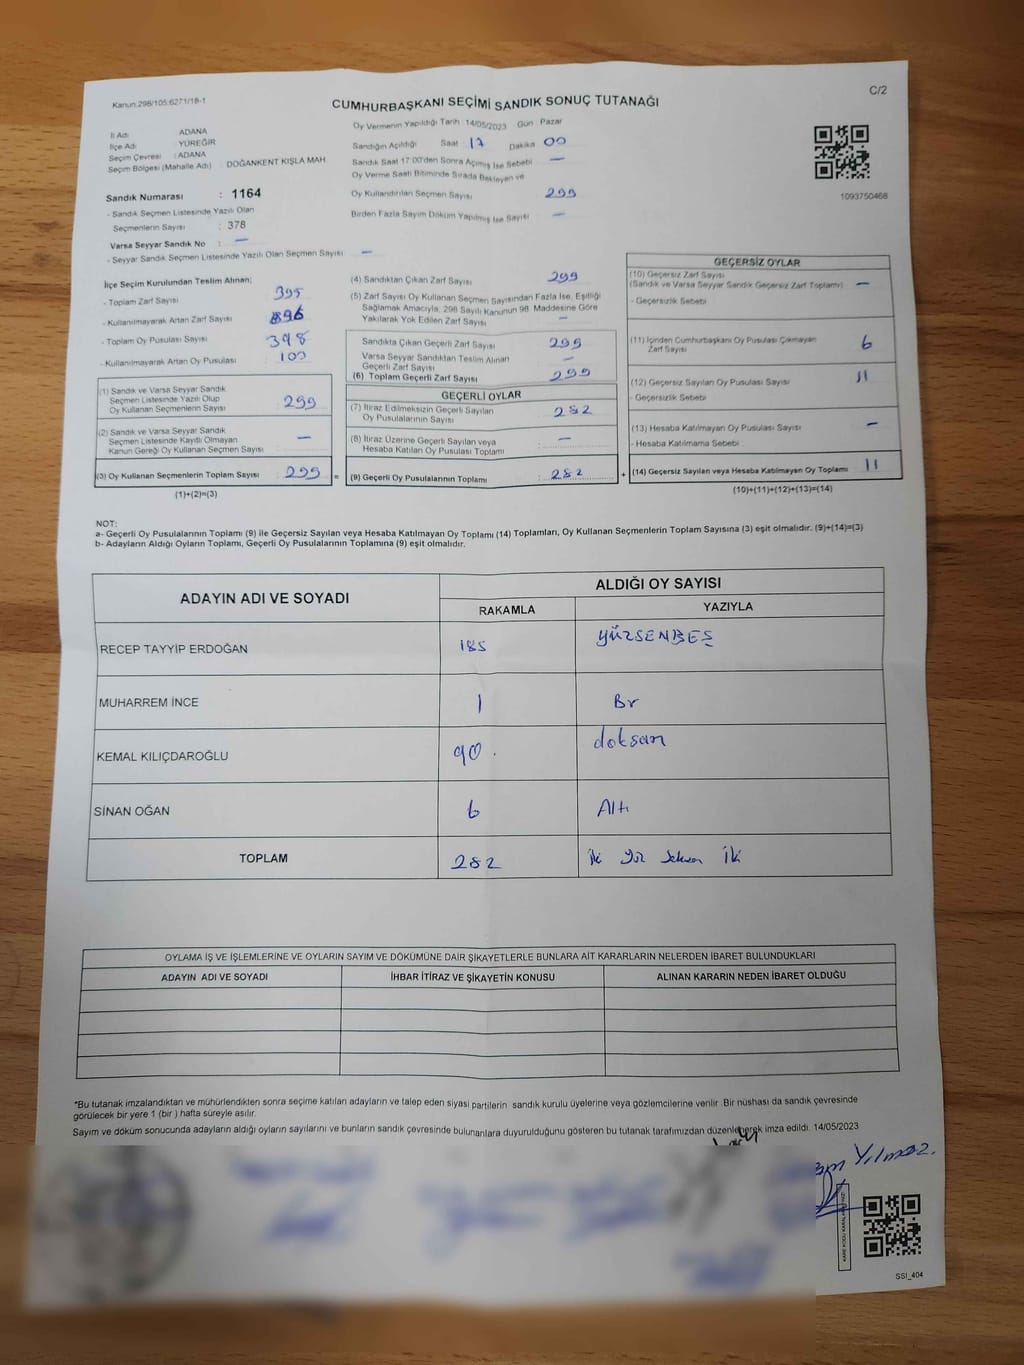 Kanun:298/105;6271/18-1
CUMHURBAŞKANI SEÇİMİ SANDIK SONUÇ TUTANAĞI
C/2
İl Adı ADANA
İlçe Adı YÜREĞİR
Seçim Çevresi : ADANA
Seçim Bölgesi (Mahalle Adı) : DOĞANKENT KIŞLA MAH
Sandık Numarası : 1164
- Sandık Seçmen Listesinde Yazılı Olan
Seçmenlerin Sayısı : 378
Varsa Seyyar Sandık No : —
- Seyyar Sandık Seçmen Listesinde Yazılı Olan Seçmen Sayısı —
Oy Vermenin Yapıldığı Tarih :14/05/2023 Gün : Pazar
Sandığın Açıldığı Saat : 17 Dakika 00
Sandık Saat 17:00'den Sonra Açılmış İse Sebebi —
Oy Verme Saati Bitiminde Sırada Bekleyen ve
Oy Kullandırılan Seçmen Sayısı 299
Birden Fazla Sayım Döküm Yapılmış İse Sayısı —
1093750468
İlçe Seçim Kurulundan Teslim Alınan;
- Toplam Zarf Sayısı 395
- Kullanılmayarak Artan Zarf Sayısı 896
- Toplam Oy Pusulası Sayısı 398
- Kullanılmayarak Artan Oy Pusulası 100
(1) Sandık ve Varsa Seyyar Sandık
Seçmen Listesinde Yazılı Olup
Oy Kullanan Seçmenlerin Sayısı 299
(2) Sandık ve Varsa Seyyar Sandık
Seçmen Listesinde Kayıtlı Olmayan
Kanun Gereği Oy Kullanan Seçmen Sayısı —
(3) Oy Kullanan Seçmenlerin Toplam Sayısı 299 =
(1)+(2)=(3)
(4) Sandıktan Çıkan Zarf Sayısı 299
(5) Zarf Sayısı Oy Kullanan Seçmen Sayısından Fazla İse, Eşitliği
Sağlamak Amacıyla, 298 Sayılı Kanunun 98. Maddesine Göre
Yakılarak Yok Edilen Zarf Sayısı —
Sandıkta Çıkan Geçerli Zarf Sayısı 299
Varsa Seyyar Sandıktan Teslim Alınan
Geçerli Zarf Sayısı —
(6) Toplam Geçerli Zarf Sayısı 299
GEÇERLİ OYLAR
(7) İtiraz Edilmeksizin Geçerli Sayılan
Oy Pusulalarının Sayısı 282
(8) İtiraz Üzerine Geçerli Sayılan veya
Hesaba Katılan Oy Pusulası Toplamı —
(9) Geçerli Oy Pusulalarının Toplamı : 282 +
GEÇERSİZ OYLAR
(10) Geçersiz Zarf Sayısı
(Sandık ve Varsa Seyyar Sandık Geçersiz Zarf Toplamı) —
- Geçersizlik Sebebi
(11) İçinden Cumhurbaşkanı Oy Pusulası Çıkmayan
Zarf Sayısı 6
(12) Geçersiz Sayılan Oy Pusulası Sayısı 11
- Geçersizlik Sebebi
(13) Hesaba Katılmayan Oy Pusulası Sayısı —
- Hesaba Katılmama Sebebi
(14) Geçersiz Sayılan veya Hesaba Katılmayan Oy Toplamı 11
(10)+(11)+(12)+(13)=(14)
NOT:
a- Geçerli Oy Pusulalarının Toplamı (9) ile Geçersiz Sayılan veya Hesaba Katılmayan Oy Toplamı (14) Toplamları, Oy Kullanan Seçmenlerin Toplam Sayısına (3) eşit olmalıdır. (9)+(14)=(3)
b- Adayların Aldığı Oyların Toplamı, Geçerli Oy Pusulalarının Toplamına (9) eşit olmalıdır.
ADAYIN ADI VE SOYADI
ALDIĞI OY SAYISI
RAKAMLA YAZIYLA
RECEP TAYYİP ERDOĞAN 185 YÜZSENBEŞ
MUHARREM İNCE 1 Bir
KEMAL KILIÇDAROĞLU 90. doksan
SİNAN OĞAN 6 Altı
TOPLAM 282 İki yüz seksen iki
OYLAMA İŞ VE İŞLEMLERİNE VE OYLARIN SAYIM VE DÖKÜMÜNE DAİR ŞİKAYETLERLE BUNLARA AİT KARARLARIN NELERDEN İBARET BULUNDUKLARI
ADAYIN ADI VE SOYADI İHBAR İTİRAZ VE ŞİKAYETİN KONUSU ALINAN KARARIN NEDEN İBARET OLDUĞU
*Bu tutanak imzalandıktan ve mühürlendikten sonra seçime katılan adayların ve talep eden siyasi partilerin sandık kurulu üyelerine veya gözlemcilerine verilir. Bir nüshası da sandık çevresinde
görülecek bir yere 1 (bir) hafta süreyle asılır.
Sayım ve döküm sonucunda adayların aldığı oyların sayılarını ve bunların sandık çevresinde bulunanlara duyurulduğunu gösteren bu tutanak tarafımızdan düzenlenerek imza edildi. 14/05/2023
Yılmaz.
SSI_404